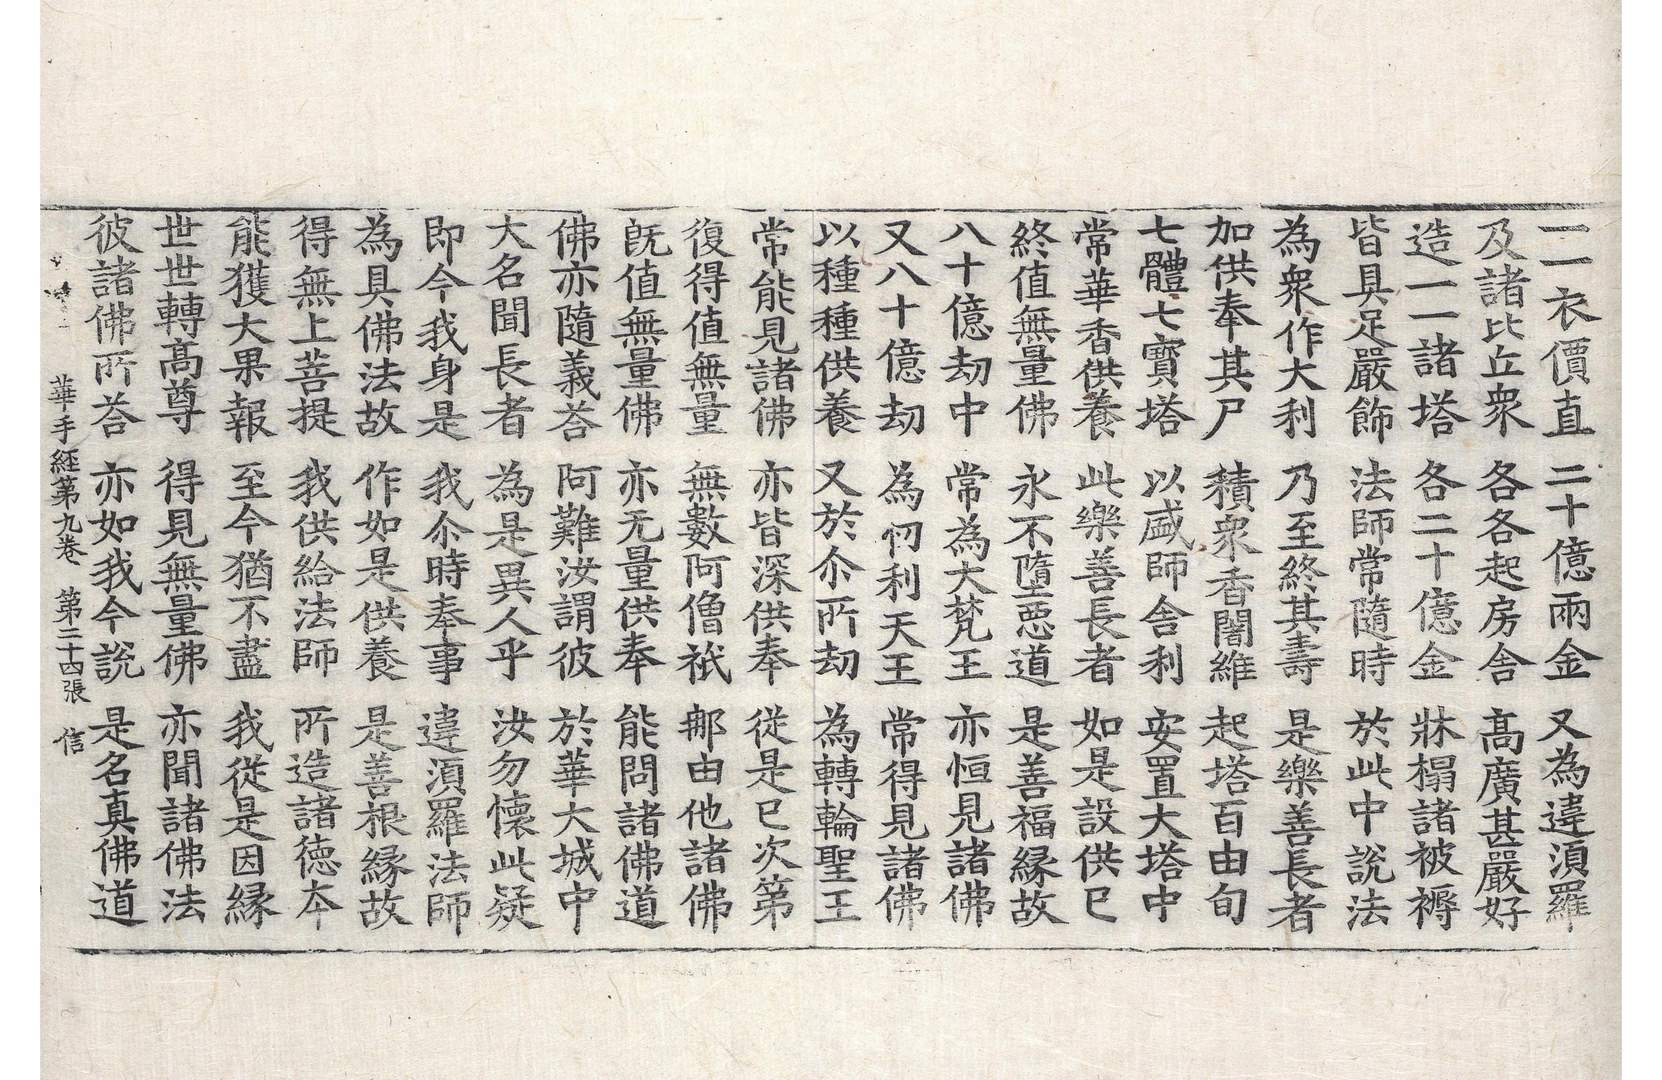 一一衣價直 二十億兩金 又為違須羅
及諸比丘衆 各各起房舍 髙廣甚嚴好
造一一諸塔 各二十億金 牀榻諸被褥
皆具足嚴飾 法師常隨時 於此中說法
為衆作大利 乃至終其壽 是樂善長者
加供奉其尸 積衆香闍維 起塔百由旬
七體七寶塔 以盛師舍利 安置大塔中
常華香供養 此樂善長者 如是設供已
終值無量佛 永不墮惡道 是善福緣故
八十億劫中 常為大梵王 亦恒見諸佛
又八十億劫 為忉利天王 常得見諸佛
以種種供養 又於尒所劫 為轉輪聖王
常能見諸佛 亦皆深供奉 從是已次第
復得值無量 無數阿僧祇 那由他諸佛
旣值無量佛 亦无量供奉 能問諸佛道
佛亦隨義荅 阿難汝謂彼 於華大城中
大名聞長者 為是異人乎 汝勿懷此疑
即今我身是 我尒時奉事 違須羅法師
為具佛法故 作如是供養 是善根緣故
得無上菩提 我供給法師 所造諸德夲
能獲大果報 至今猶不盡 我從是因緣
世世轉髙尊 得見無量佛 亦聞諸佛法
彼諸佛所荅 亦如我今說 是名真佛道
華手經第九卷 第二十四張 信